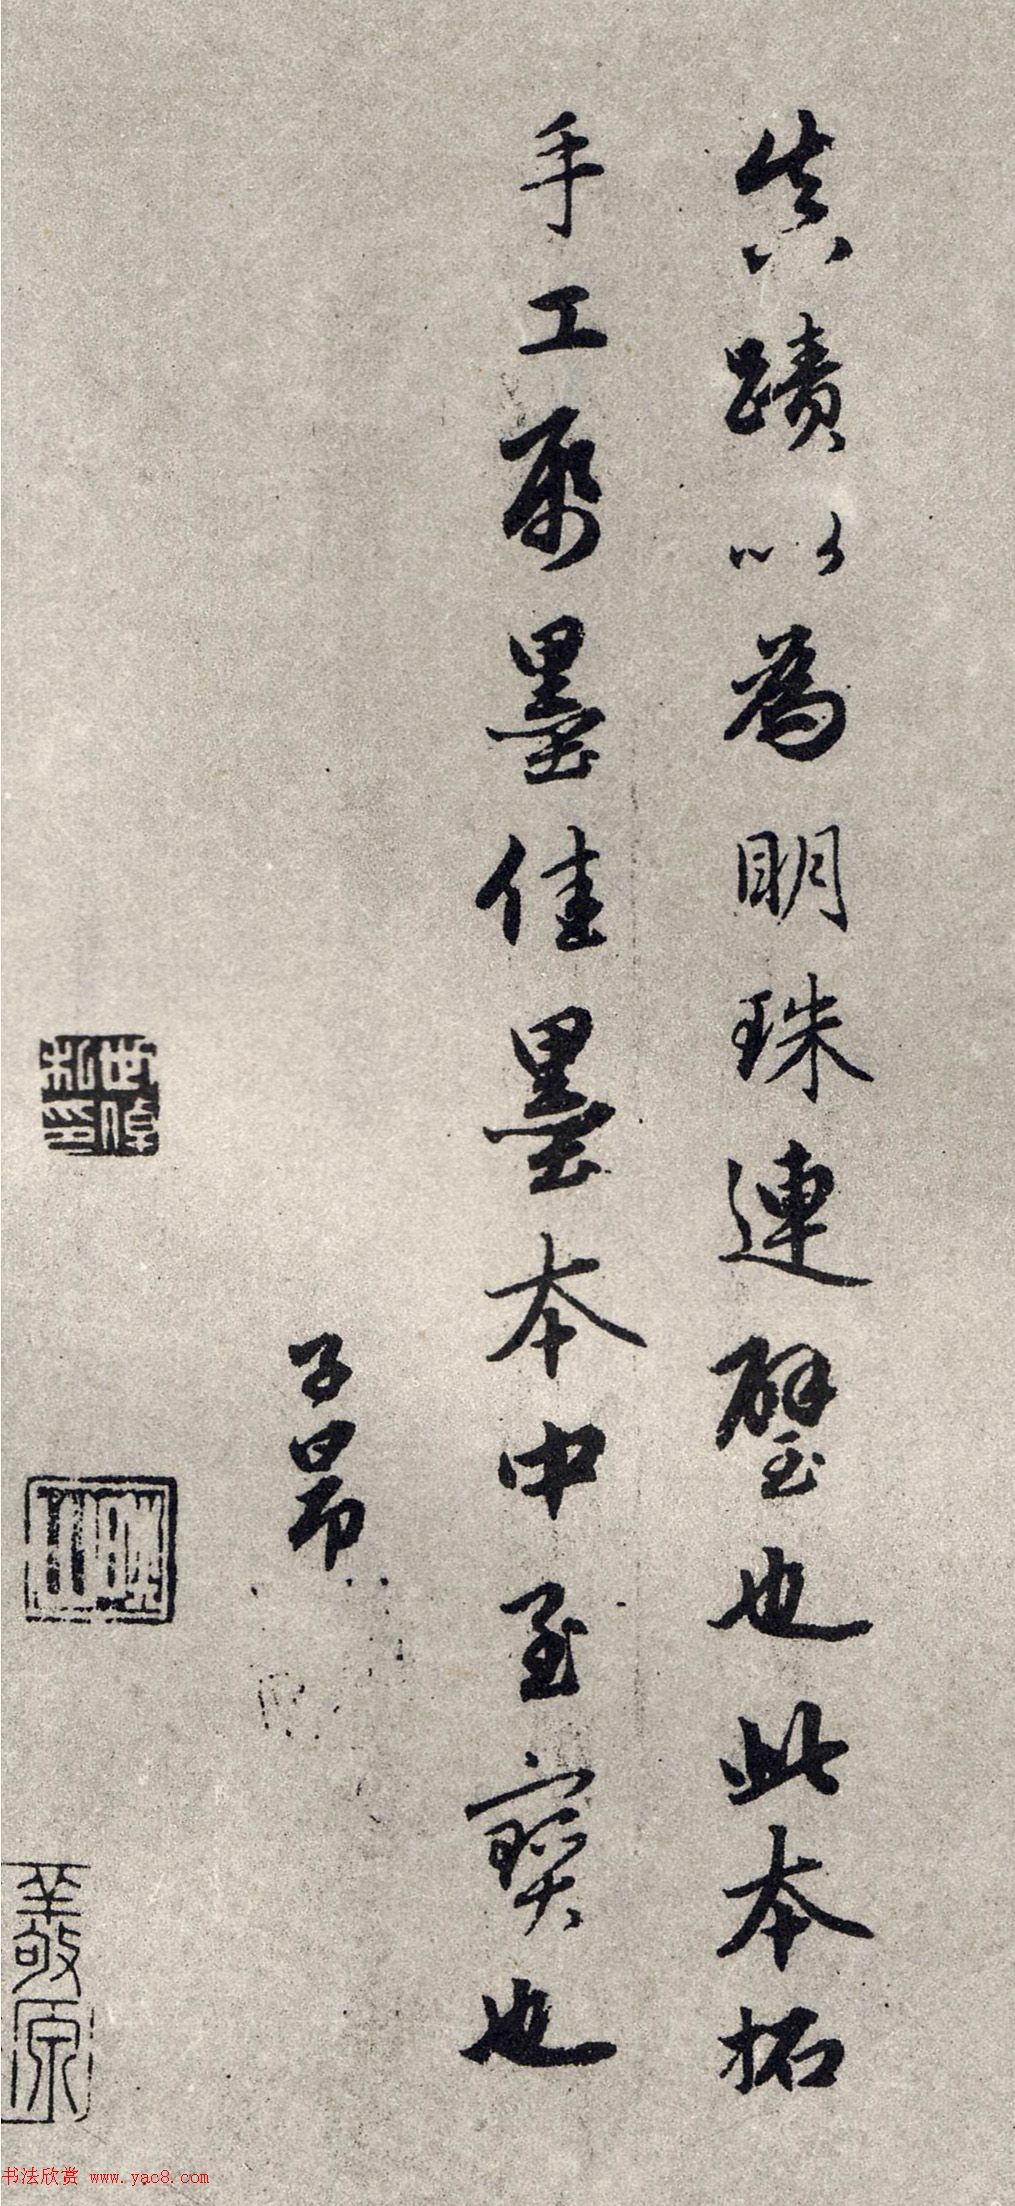 真蹟以為明珠連璧也此本拓
手工帋墨佳墨本中至寶也
子昂
书法欣赏 www.yac8.com